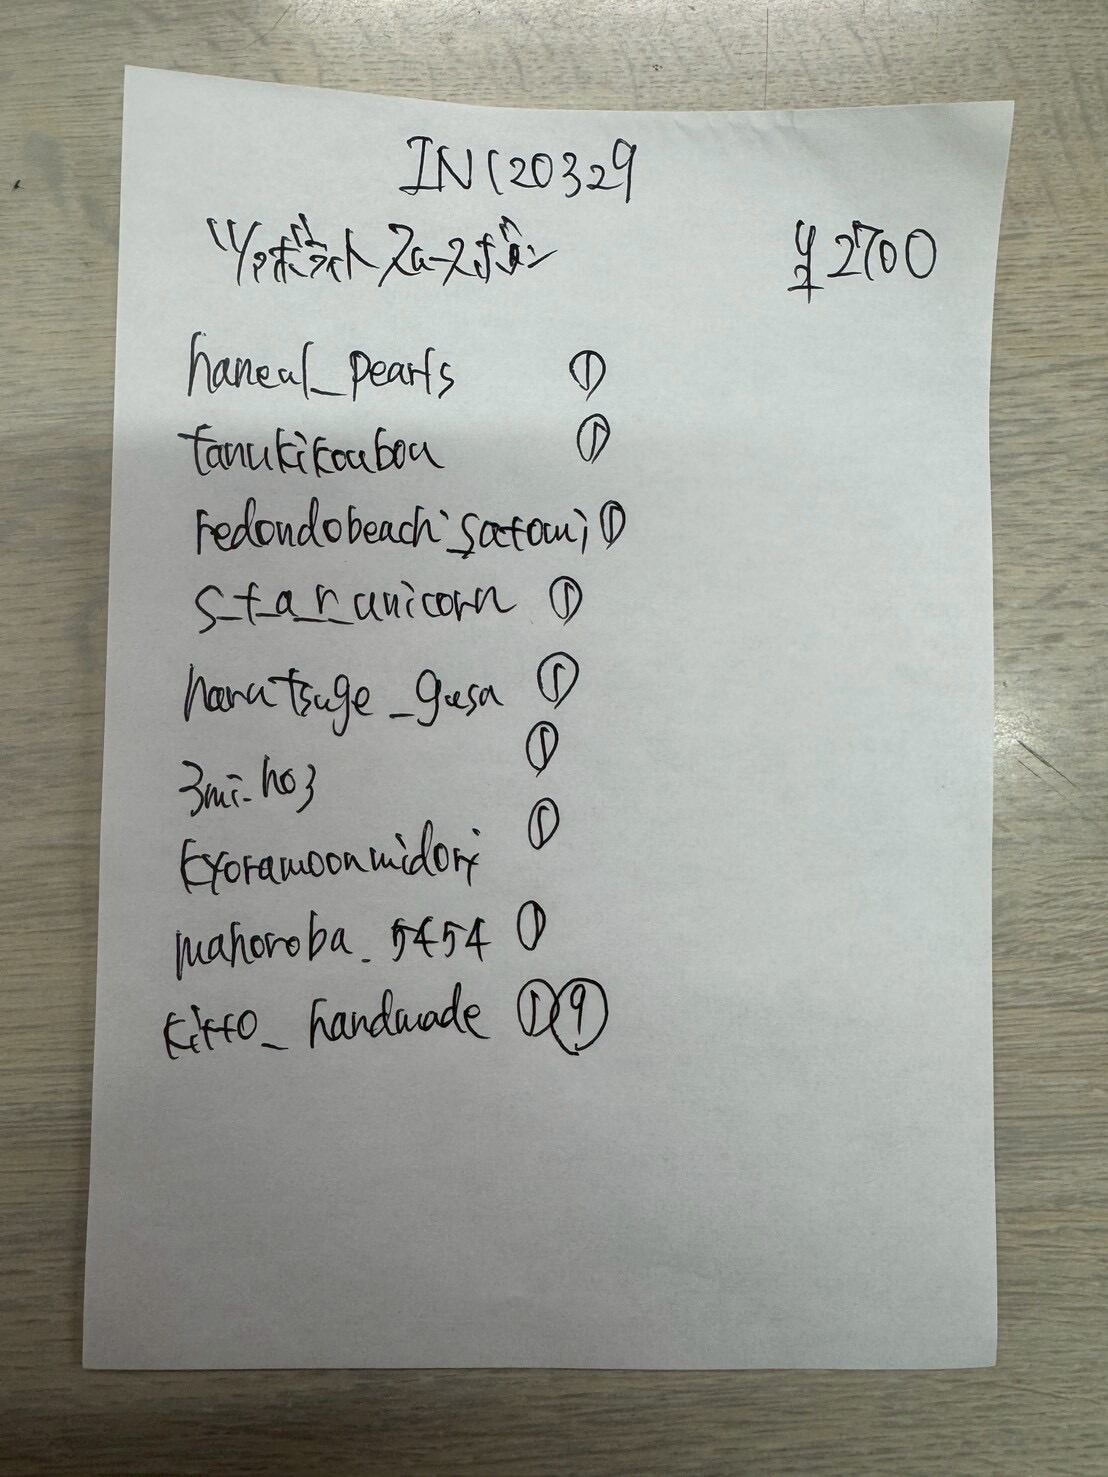 IN120329
¥2700
haneul_pearls ①
tanukikoubou ①
redondobeach_satomi ①
s_t_a_r_unicorn ①
harutsuge_gusa ①
3mi_ho3 ①
kyoramoonmidori ①
mahoroba_5454 ①
kitto_handmade ① ⑨